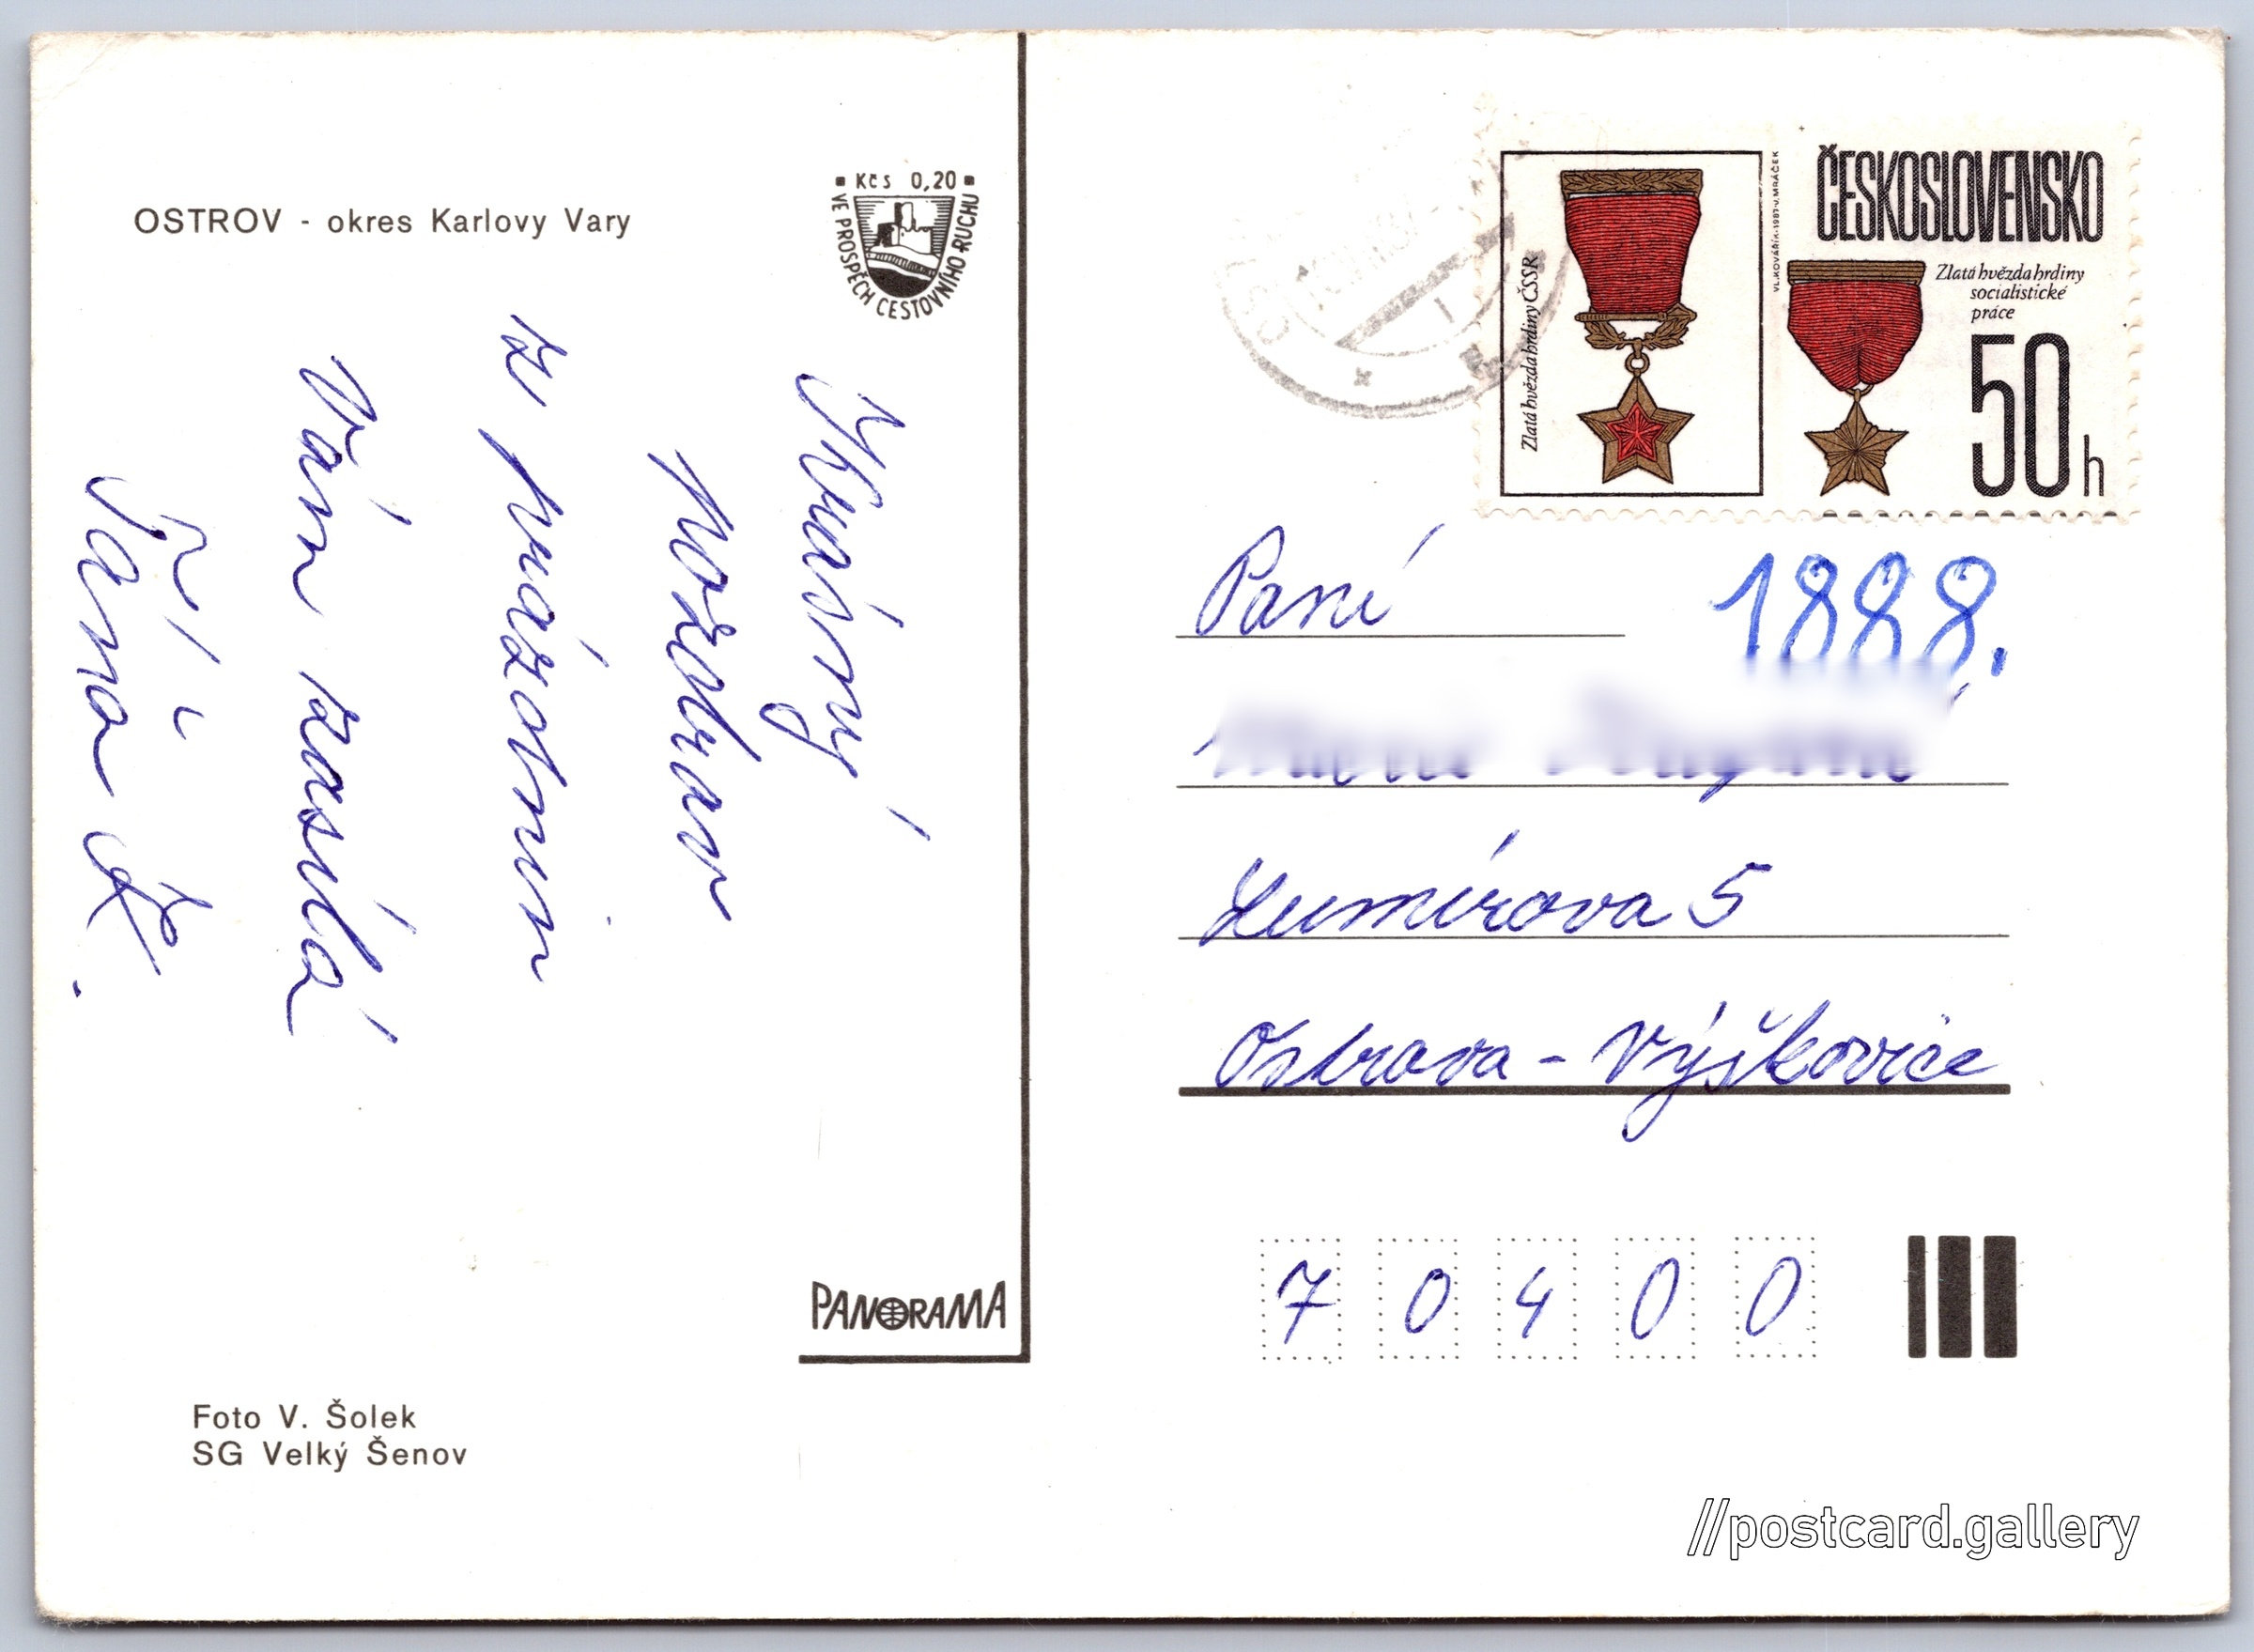 OSTROV - okres Karlovy Vary
Kčs 0,20
VE PROSPĚCH CESTOVNÍHO RUCHU
Krásný
pozdrav
z prázdnin
Vám zasílá
Táňa
PANORAMA
Foto V. Šolek
SG Velký Šenov
Zlatá hvězda hrdiny ČSSR
VL.KOVÁŘÍK-1987-J.MRÁČEK
ČESKOSLOVENSKO
Zlatá hvězda hrdiny
socialistické
práce
50 h
Paní
1888.
Lumírova 5
Ostrava - Výškovice
70400
//postcard.gallery